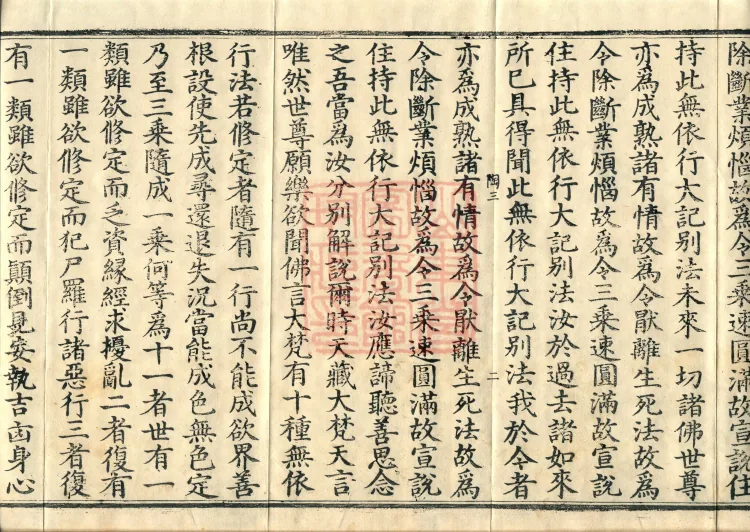 除斷業煩惱故爲令三乘速圓滿故宣說住
持此無依行大記別法未來一切諸佛世尊
亦爲成熟諸有情故爲令猒離生死法故爲
令除斷業煩惱故爲令三乘速圓滿故宣說
住持此無依行大記別法汝於過去諸如來
所已具得聞此無依行大記別法我於今者
陶三
二
亦爲成熟諸有情故爲令猒離生死法故爲
令除斷業煩惱故爲令三乘速圓滿故宣說
住持此無依行大記別法汝應諦聽善思念
之吾當爲汝分別解說爾時天藏大梵天言
唯然世尊願樂欲聞佛言大梵有十種無依
行法若修定者隨有一行尚不能成欲界善
根設使先成尋還退失況當能成色無色定
乃至三乘隨成一乘何等爲十一者世有一
類雖欲修定而乏資緣經求擾亂二者復有
一類雖欲修定而犯尸羅行諸惡行三者復
有一類雖欲修定而顛倒見妄執吉凶身心